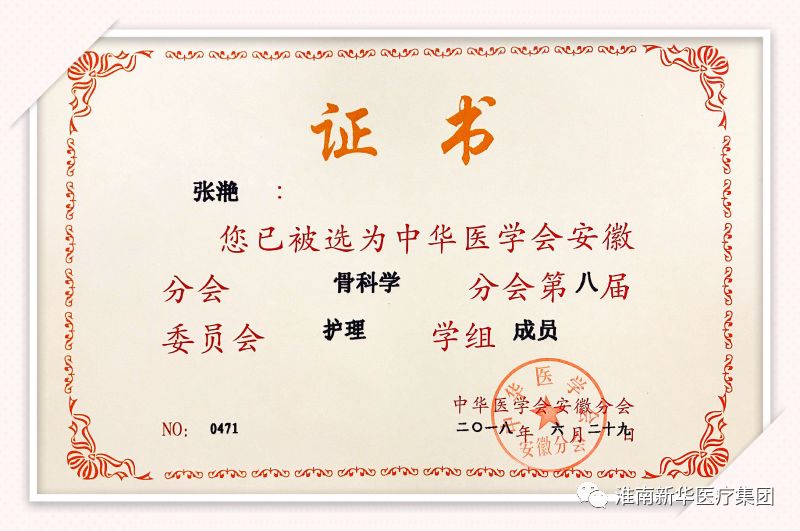 证 书
张滟 :
您已被选为中华医学会安徽
分会 骨科学 分会第八届
委员会 护理 学组 成员
中华医学会安徽分会
NO: 0471 二〇一八年 六月二十九日
中华医学会
安徽分会
淮南新华医疗集团